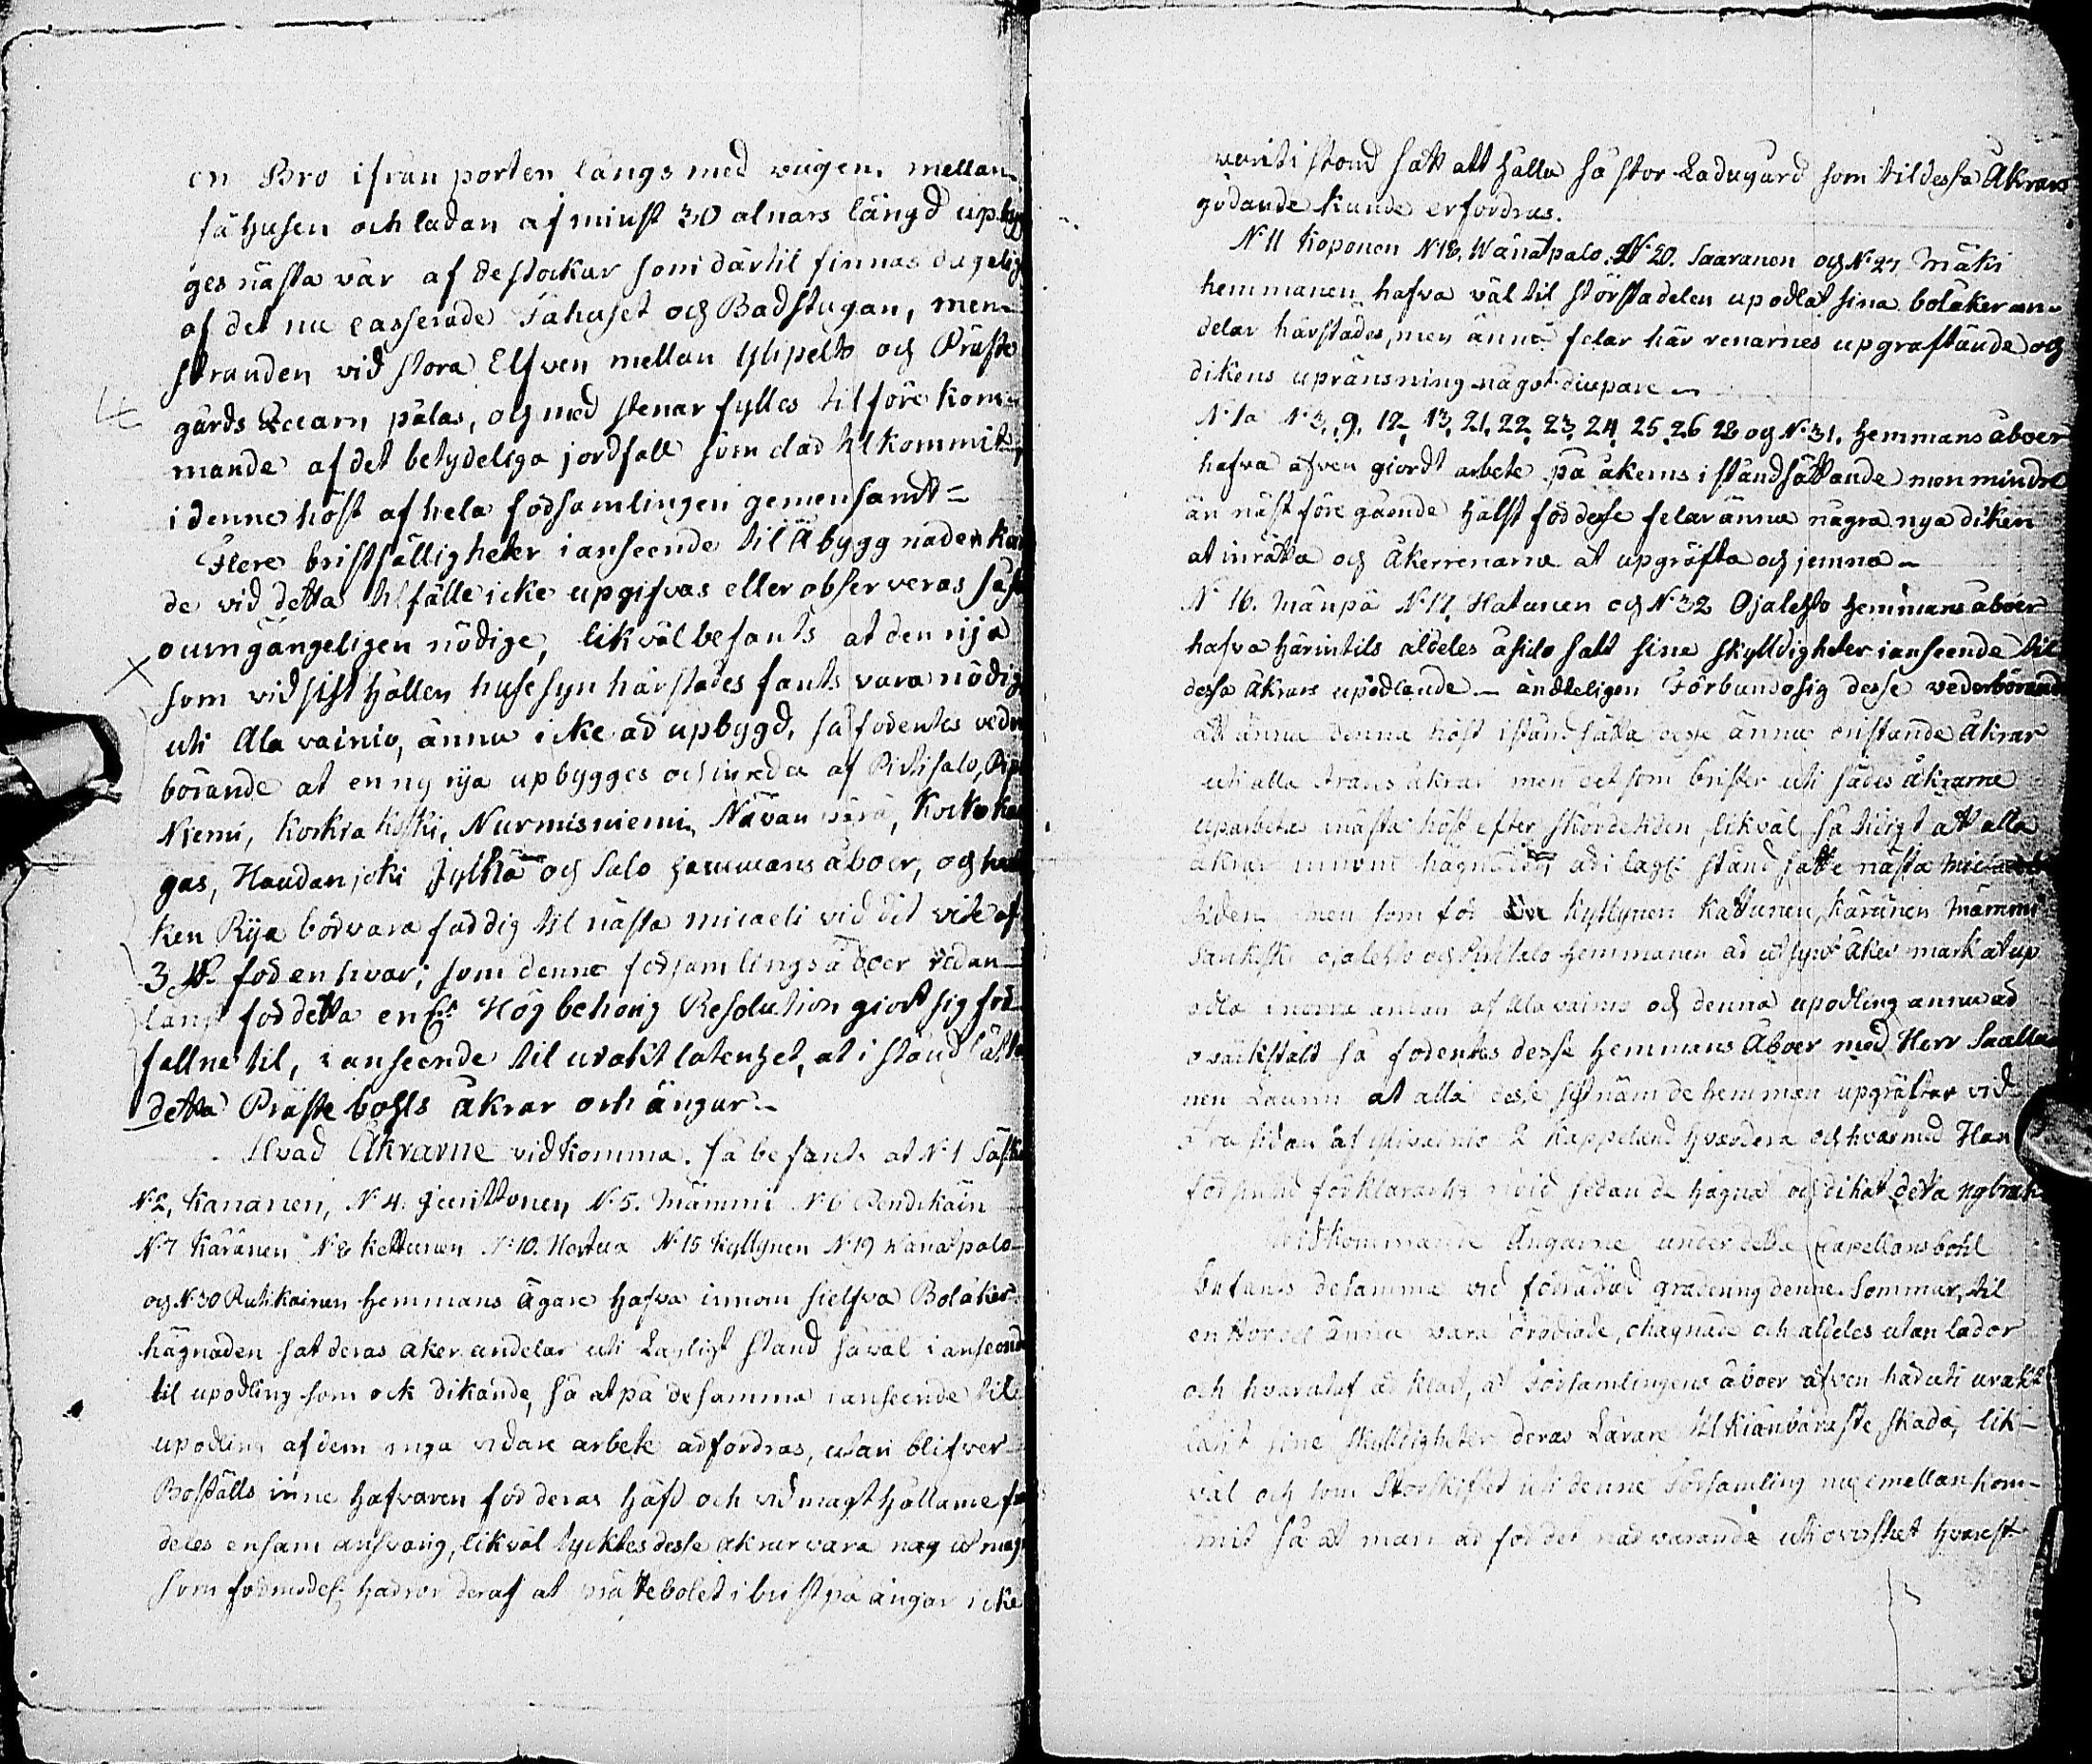 en Bro ifrån porten längs med vägen mellan
fähusen och ladan af minst 30 alnars längd upbyg
ges nästa vår af de stockar som därtil finnas dugelig
af det nu casserade Fähuset och Badstugan, men
stranden vid stora Elfven mellan Ylipelto och Präste
gårds Qvarn pålas, och med stenar fylles til före kom-
mande af det betydeliga jordfall som där tilkommit
i denne höst af hela församlingen gemensamt =
Flere bristfälligheter i anseende til Åbyggnaden kun
de vid detta tilfälle icke upgifvas eller observeras såsom
oumgängeligen nödige, likväl befants at den rija
som vid sist hållen husesyn härstädes fants vara nödig
uti Ala vainio, ännu icke är upbygd, så fordentes veder
börande at en ny rija upbygges och inredes af Pirtisalo,
Niemi, Koskia koski, Nurmisniemi, Nävän perä,
gas, Haudanjoki Jylhä och Salo hemmans åboer, och hvil
ken Rija bör vara färdig til nästa micaeli vid dit vite af
3 för en hvar; som denne församlings åboer redan
långt för detta Högbehörig Resolution giort sig för
fallne til, i anseende til uraktlåtenhet, at i stånd sätta
detta Präste bohls åkrar och ängar.-
Hvad Åkrarne vidkomma. så befants at N:1
N:2, Kananen, N:4. Junttonen, N:5. Mämmi N:6 Pendikäin
N:7 Käränen N:8 Kettunen N:10. Hertua N:15 Kyllynen N:19 Wänätpalo
och N:30 Rutikainen Hemmans Ägare hafva innom sielfva Bolåker
hägnaden sat deras åker andelar uti Lagligt stånd såväl i anseende
til upodling som ock dikande, så at på desamma i anseende til
upodling af dem inga vidare arbete ärfordras, utan blifver
Boställs inne hafvaren för deras häfd och vid magt hållande
deles ensam ansvarig, likväl tycktes desse åkrar vara nog ut
som förmodel: härror deraf at prästebolet i brist på ängar icke
varit i stånd satt att hålla så stor Ladugård som til dessa Åkrars
gödande kunde erfordras.
N:11 Koponen N:18. Wänätpalo. N:20. Saaranen och N:27 Mäki
hemmanen hafva väl til största delen upodlat sina bolåker an-
delar härstädes, men ännu felar här renarnes upgraftände och
dikens uprensning något diupare -
N:1a N:3, 9, 12, 13, 21, 22, 23, 24, 25, 26 28 och N:31. Hemmans åboer
hafva äfven giordt arbete på åkerns i ståndsättande men mindre
än näst före gående hälst för desse felar ännu några nya diken
at inrätta och Åkerrenarna at upgräfta och jemna -
N:16. Mänpä N:17 Hatunen och N:32 Ojalehto Hemmans åboer
hafva härintils aldeles åsido satt sine skylldigheter i anseende til
dessa Åkrars upodlande - ändteligen Förbundo sig desse vederbörande
att ännu denna höst i stånd sätta desse ännu bristande Åkrar
uti alla träns åkrar men det som brister uti sädes åkrarne
uparbetas nästa höst efter skördetiden, likväl så tidigt att alla
åkrar innom hägnaden, är i lagl: stånd satte nästa
tiden men som för Kyllynen Kattunen, Käränen Mämmi
ojalehto och hemmanen är utsynt åker mark at up
odla innom af Ala vainio och denna upodling ännu är
overkstäld så fordentes desse hemmans Åboer med Herr
nen Laurin at alla desse sistnämde hemman upgräfter vid
sidan af 2 Kappeland hvardera och hvarmed Han
förklarade sedan de hägna och dikat detta nybruk
Vidkommande Ängarne under detta Capellansbohl
befants desamma vid förrättad gradering denne Sommar, til
en stor del ännu vara orödiade, ohägnade och aldeles utan lador
och hvarutaf är klart, at Församlingens åboer äfven häruti urakt
låtit sine skylldigheter deras Lärare til kiänbaraste skada, lik-
väl och som Storskiftet uti denne Församling nu emellan kom-
mit så at man är för det närvarande uti ovisshet hvarest